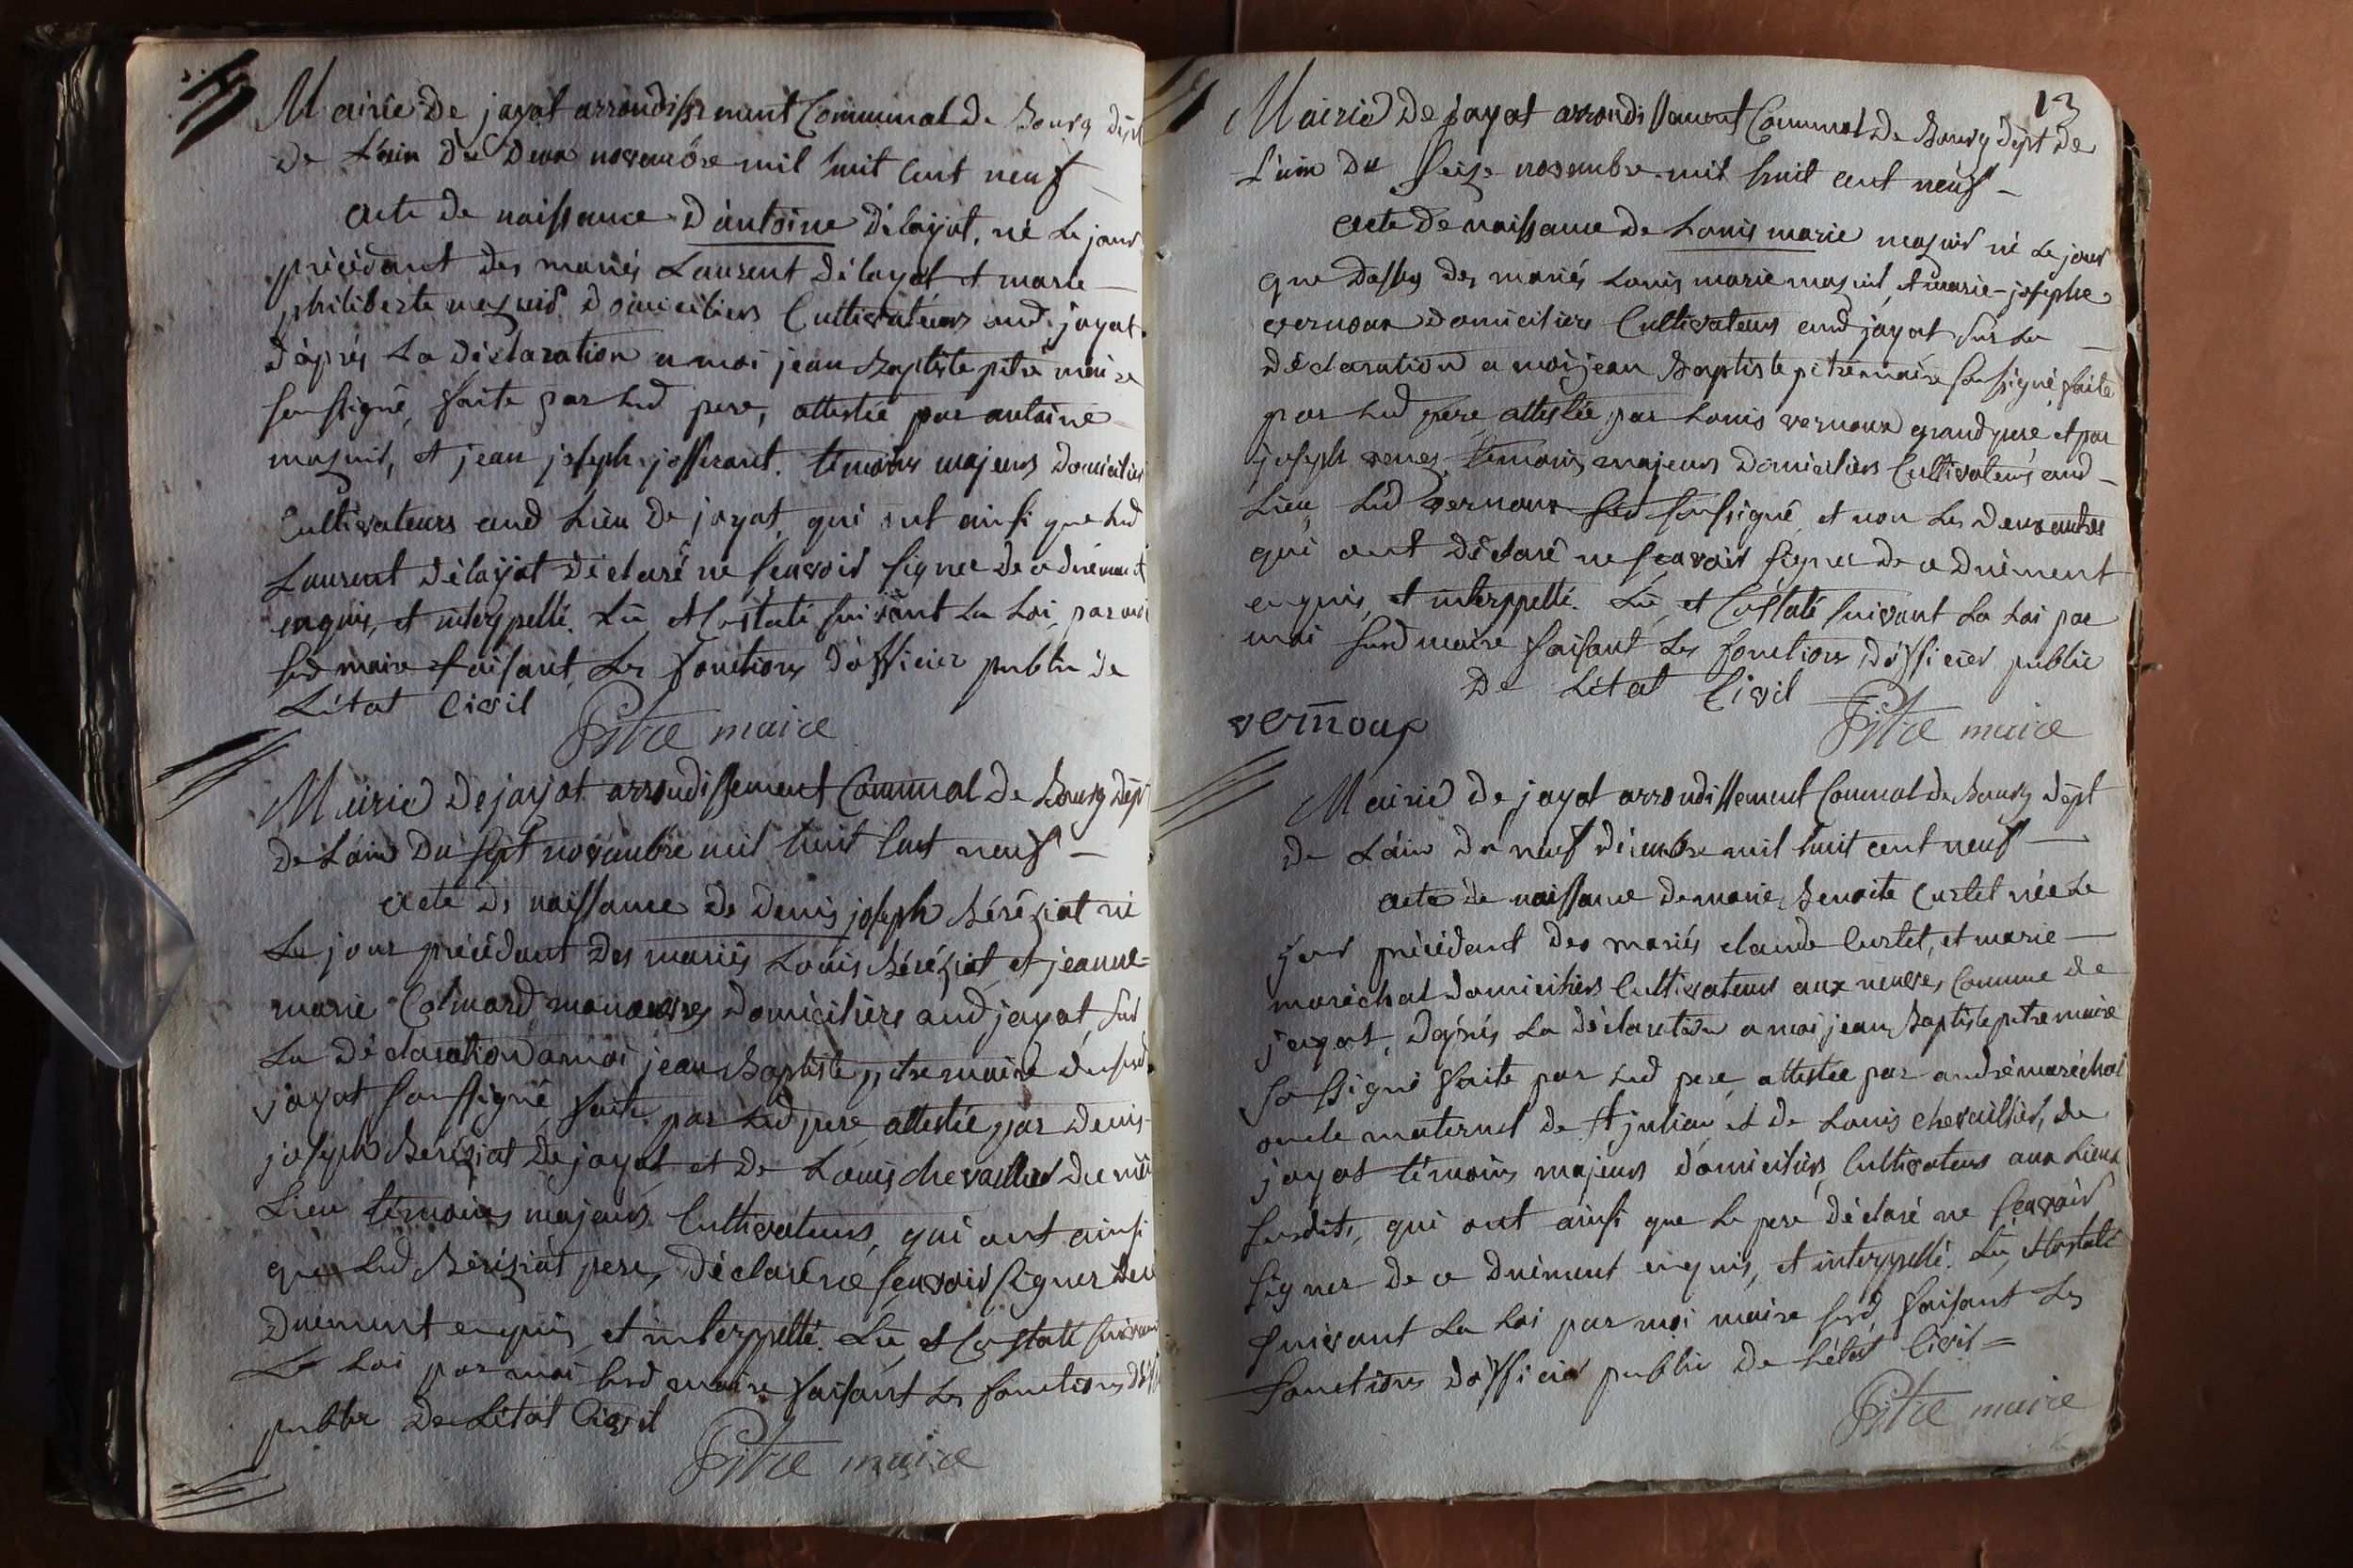 Mairie De jayat arrondissement Communal De Bourg dépt
De L'ain du Deux novembre mil huit cent neuf —
acte de naissance D'antoine Délayat, né Le jour
précédant des mariés Laurent Délayat et marie —
philiberte maznid domiciliers Cultivateurs aud. jayat.
D'après La Déclaration a moi jean Baptiste pitre maire
soussigné, faite par Led pere, attestée par antoine
maznid, et jean joseph josserant. témoins majeurs domiciliers
Cultivateurs aud Lieu De jayat, qui ont ainsi que Led
Laurent Délayat Déclaré ne scavoir signer de ce duement
enquis, et interppellé. Lu, et Costaté suivant La Loi, par moi
sud maire faisant Les fonctions d'officier public de
L'état Civil
Pitre maire
Mairie De jayat arrondissement Communal De Bourg Dépt
De L'ain Du sept novembre mil huit Cent neuf —
Acte De naissance de denis joseph Béréziat né
Le jour précédant Des mariés Louis Béréziat, et jeanne=
marie Colmard manoeuvres domiciliers aud jayat, sur
La Déclaration a moi jean Baptiste pitre maire dusud.
jayat soussigné, faite par Led pere, attestée par denis-
joseph Béréziat De jayat, et De Louis chevaillier du mê
Lieu témoins majeurs Cultivateurs, qui ont ainsi
que Led Béréziat pere, Déclaré ne scavoir signer De ce
Duement enquis, et interppellé. Lu, et Costaté suivant
La Loi par moi sud maire faisant Les fonctions d'off
public De L'état Civil
Pitre maire
13
Mairie De jayat arrondissement Communal De Bourg dépt De
L'ain Du seize novembre mil huit cent neuf —
Acte De naissance De Louis marie maznid né Le jour
que Dessus des mariés Louis marie maznid, et marie-josephe
vernoux domiciliers Cultivateurs aud jayat sur La —
Déclaration a moi jean Baptiste pitre maire soussigné, faite
par Led pere, attestée par Louis vernoux grand pere et par
joseph témoins majeurs Domiciliers Cultivateurs aud —
Lieu, Led vernoux soussigné, et non Les deux autres
qui ont Déclaré ne scavoir signer De ce Duement
enquis, et interppellé. Lu, et Costaté suivant La Loi par
moi susd maire faisant Les fonctions d'officier public
De L'état Civil —
vernoux
Pitre maire
Mairie De jayat arrondissement Communal De Bourg dépt
De L'ain Du neuf Décembre mil huit cent neuf —
acte de naissance De marie Benoite Curtet née Le
jour précédant des mariés claude Curtet, et marie —
maréchal domiciliers Cultivateurs aux Commune de
jayat, D'après La déclaration a moi jean Baptiste pitre maire
soussigné faite par Led pere, attestée par andré maréchal
oncle maternel de St julien, et de Louis chevaillier, de
jayat témoins majeurs domiciliers Cultivateurs aux Lieux
susdits, qui ont ainsi que Le pere Déclaré ne scavoir
signer De ce duement enquis, et interppellé. Lu, et Costaté
suivant La Loi par moi maire susd, faisant Les
fonctions d'officier public De L'état Civil =
Pitre maire